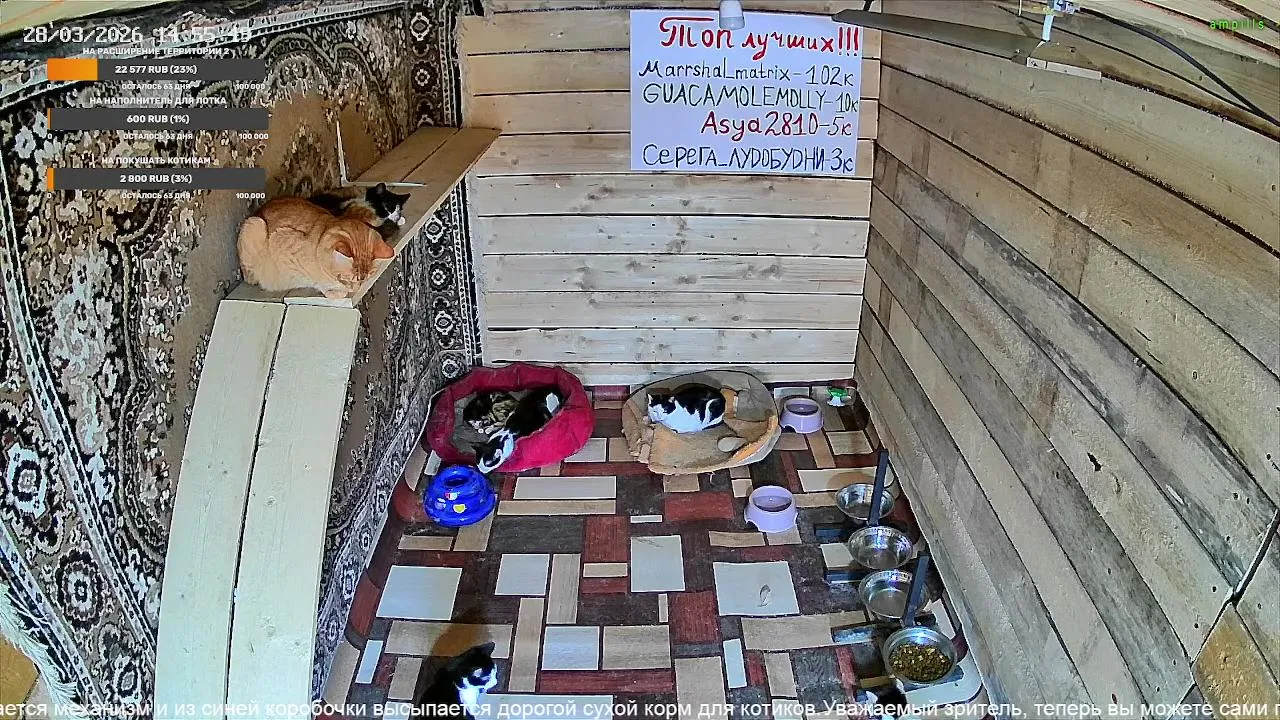 28/03/2026 14:55:49
НА РАСШИРЕНИЕ ТЕРРИТОРИИ 2
22 577 RUB (23%)
0 ОСТАЛОСЬ 63 ДНЯ 100 000
НА НАПОЛНИТЕЛЬ ДЛЯ ЛОТКА
600 RUB (1%)
0 ОСТАЛОСЬ 63 ДНЯ 100 000
НА ПОКУШАТЬ КОТИКАМ
2 800 RUB (3%)
0 ОСТАЛОСЬ 63 ДНЯ 100 000
Топ лучших!!!
Marrshal_matrix-102к
GUACAMOLEMOLLY-10к
Asya2810-5к
Серега_ЛУДОБУДНИ-3к
ampills
ается механизм и из синей коробочки высыпается дорогой сухой корм для котиков. Уважаемый зритель, теперь вы можете сами